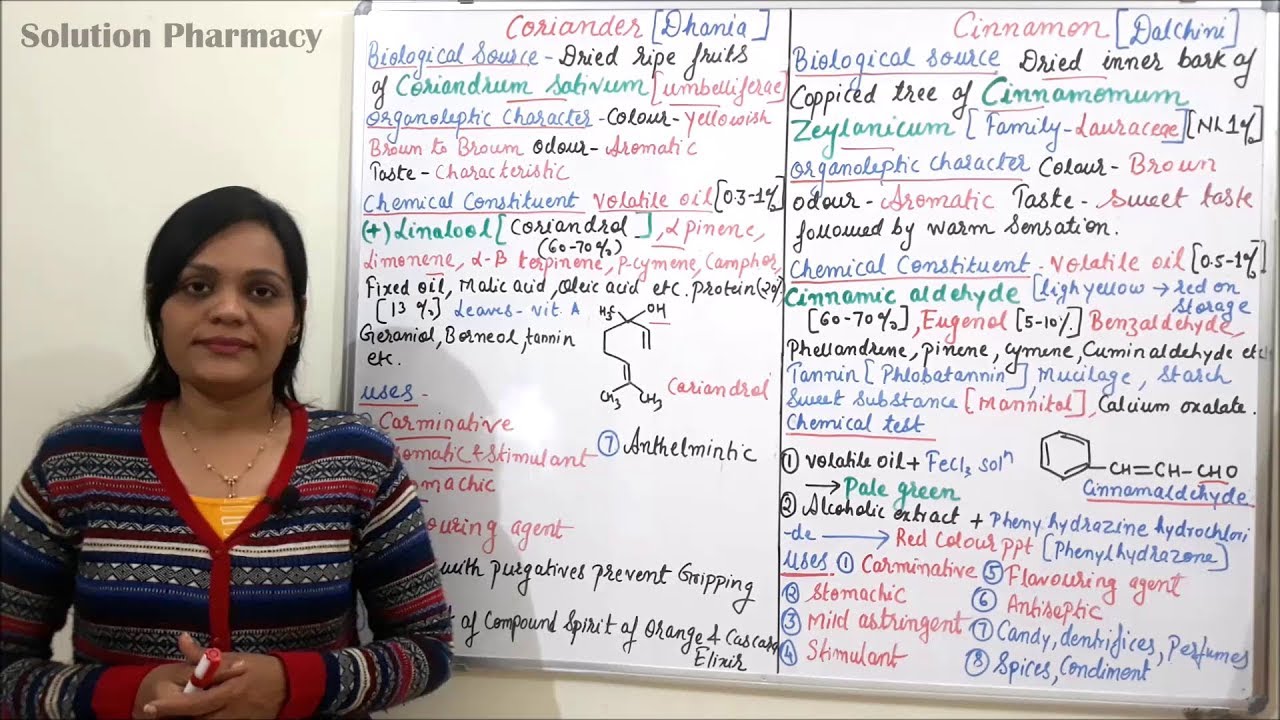 Solution Pharmacy
Coriander [Dhania]
Biological Source - Dried ripe fruits
of Coriandrum sativum [umbelliferae]
Organoleptic Character - Colour - Yellowish
Brown to Brown Odour - Aromatic
Taste - Characteristic
Chemical Constituent Volatile oil [0.3-1%]
(+) Linalool [Coriandrol], α pinene,
(60-70%)
Limonene, α-β terpinene, P-cymene, Camphor,
Fixed oil, Malic acid, Oleic acid etc. Protein (20%)
[13 %] Leaves - vit. A
Geraniol, Borneol, tannin
etc.
H3C OH
CH3 CH3
Coriandrol
uses -
Carminative
omatic & Stimulant
⑦ Anthelmintic
omachic
ouring agent
with purgatives prevent Gripping
of Compound Spirit of Orange & Cascara
Elixir
Cinnamon [Dalchini]
Biological source Dried inner bark of
Coppiced tree of Cinnamomum
Zeylanicum [Family - Lauraceae] [NLT 1%]
Organoleptic Character Colour - Brown
odour - Aromatic Taste - Sweet taste
followed by warm Sensation.
Chemical Constituent - Volatile oil [0.5-1%]
Cinnamic aldehyde [ligh yellow → red on
storage
[60-70%], Eugenol [5-10%] Benzaldehyde,
Phellandrene, pinene, cymene, Cuminaldehyde etc
Tannin [Phlobatannin], Mucilage, Starch
Sweet Substance [Mannitol], Calcium oxalate.
Chemical test
① Volatile oil + FeCl3 solⁿ
→ Pale green
CH=CH-CHO
Cinnamaldehyde
② Alcoholic extract + Pheny hydrazine hydrochlori
-de → Red Colour ppt [Phenylhydrazone]
uses ① Carminative ⑤ Flavouring agent
② Stomachic ⑥ Antiseptic
③ mild astringent ⑦ Candy, dentrifices, Perfumes
④ Stimulant ⑧ Spices, Condiment